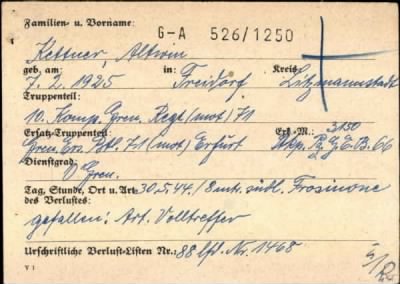 Familien- u. Vorname: G-A 526/1250
Kettner, Altwin
geb. am: in: Kreis
7.2.1925 Freidorf Litzmannstadt
Truppenteil:
10. Komp. Gren. Regt (mot) 71
Ersatz-Truppenteil: Erk.-M.: 3150
Gren. Ers. Btl. 71 (mot) Erfurt G.E.B. 66
Dienstgrad:
Gren.
Tag, Stunde, Ort u. Art 30.5.44. / 8 südl. Frosinone
des Verlustes:
gefallen: Art. Volltreffer
Urschriftliche Verlust-Listen Nr.: 88 lfd. Nr. 1468
V 1